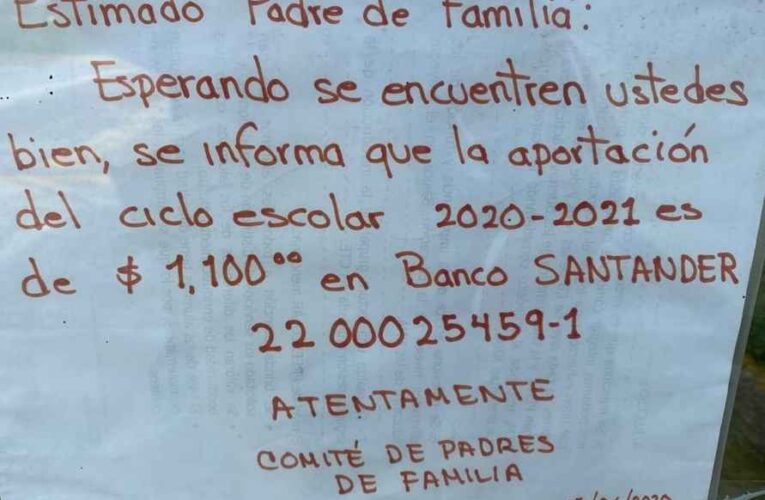 Estimado Padre de familia:
Esperando se encuentren ustedes
bien, se informa que la aportación
del ciclo escolar 2020-2021 es
de $ 1,100°° en Banco SANTANDER
22 000 25459-1
ATENTAMENTE
COMITÉ DE PADRES
DE FAMILIA